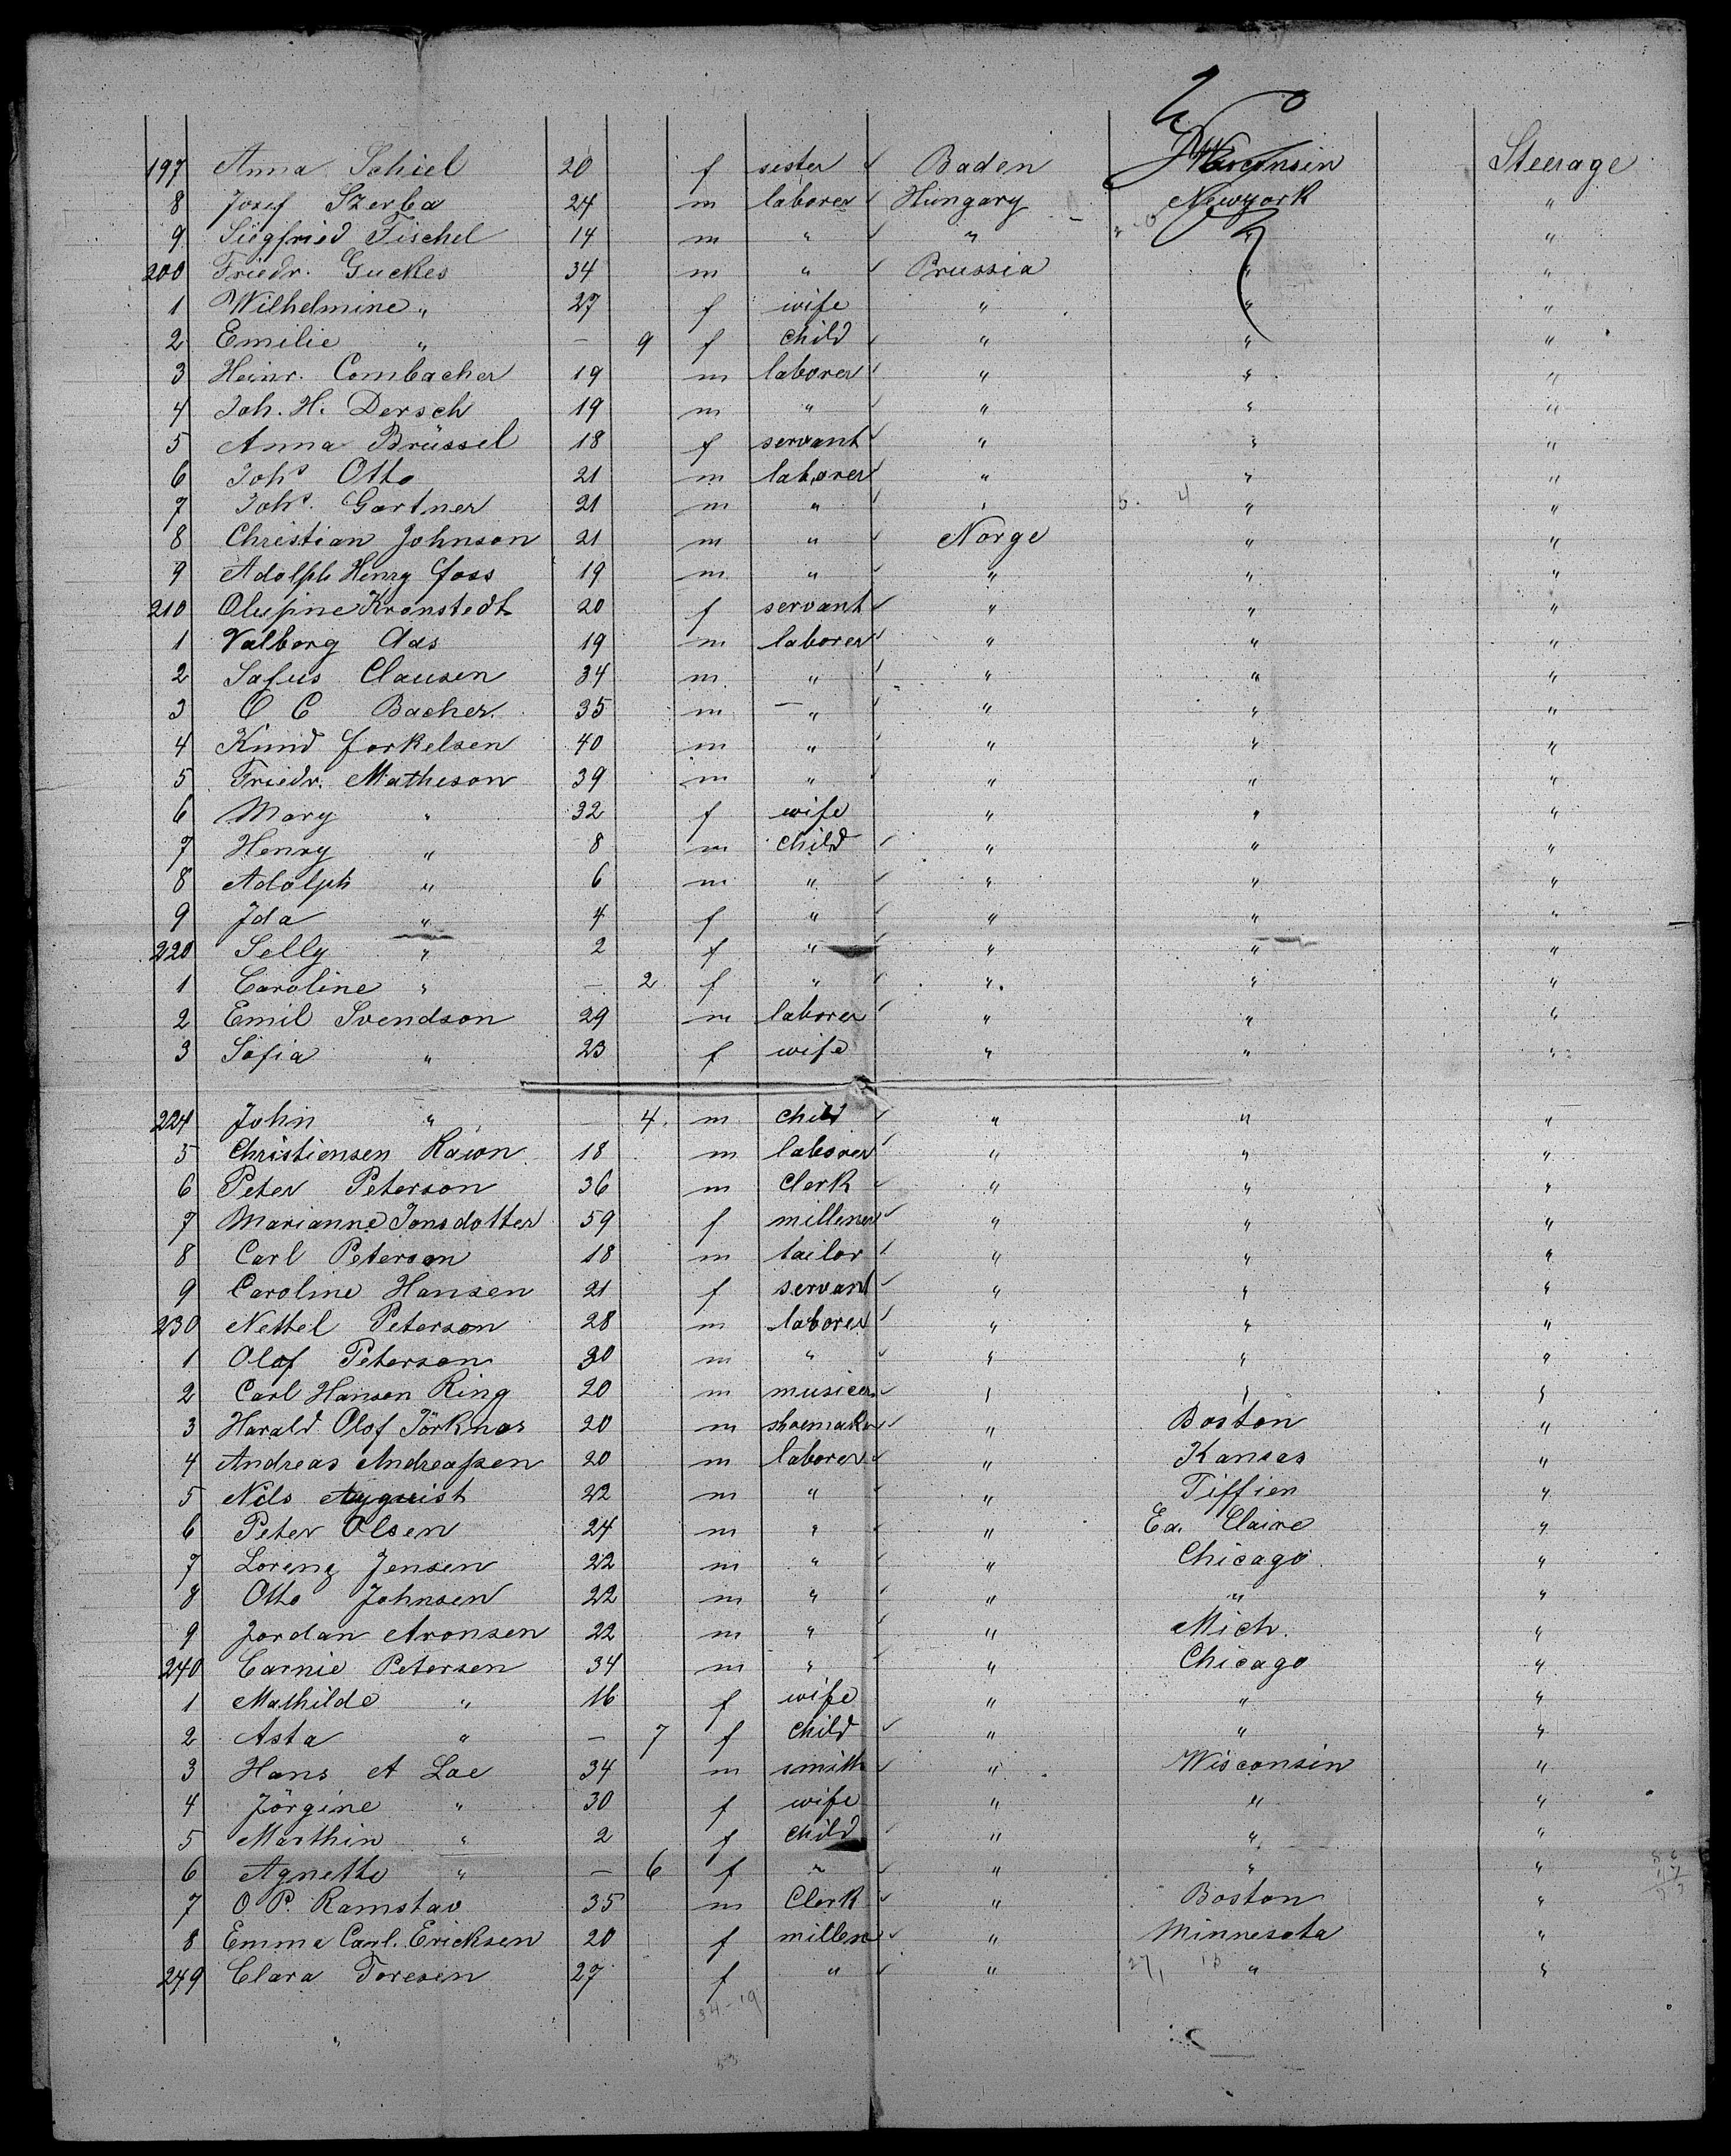 197 Anna Schiel 20 f sister ✓ Baden Wisconsin Steerage
8 Josef Szerba 24 m laborer ✓ Hungary Newyork "
9 Siegfried Fischel 14 m " ✓ " " "
200 Friedr. Guckes 34 m " ✓ Prussia " "
1 Wilhelmine " 27 f wife " " "
2 Emilie " — 9 f child ✓ " " "
3 Heinr. Combacher 19 m laborer ✓ " " "
4 Joh. H. Dersch 19 m " ✓ " " "
5 Anna Brüssel 18 f servant ✓ " " "
6 Johs Otto 21 m laborer ✓ " " "
7 Johs. Gartner 21 m " ✓ " 5. 4 " "
8 Christian Johnson 21 m " ✓ Norge " "
9 Adolph Henry foss 19 m " ✓ " " "
210 Olufine Kronstedt 20 f servant ✓ " " "
1 Valborg Aas 19 m laborer ✓ " " "
2 Safus Clausen 34 m " ✓ " " "
3 O C Bacher. 35 m — " ✓ " " "
4 Knud forkelsen 40 m " ✓ " " "
5 Friedr. Matheson 39 m " ✓ " " "
6 Mary " 32 f wife " " "
7 Henry " 8 m child ✓ " " "
8 Adolph " 6 m " ✓ " " "
9 Ida " 4 f " ✓ " " "
220 Selly " 2 f " ✓ " " "
1 Caroline " — 2 f " ✓ " " "
2 Emil Svendson 29 m laborer ✓ " " "
3 Sofia " 23 f wife " " "
224 John " — 4. m child ✓ " " "
5 Christiensen Rawn 18 m laborer ✓ " " "
6 Peter Peterson 36 m Clerk ✓ " " "
7 Marianne Jonsdotter 59 f milliner ✓ " " "
8 Carl Peterson 18 m tailor ✓ " " "
9 Caroline Hansen 21 f servant ✓ " " "
230 Nettel Peterson 28 m laborer ✓ " " "
1 Olof Peterson 30 m " ✓ " " "
2 Carl Hansen Ring 20 m musicer ✓ " " "
3 Harald Olof Törknos 20 m shoemaker ✓ " Boston "
4 Andreas Andreassen 20 m laborer ✓ " Kansas "
5 Nils 22 m " ✓ " Tiffien "
6 Peter Olsen 24 m " ✓ " Ea. Claire "
7 Lorenz Jensen 22 m " ✓ " Chicago "
8 Otto Johnsen 22 m " ✓ " " "
9 Jordan Aronsen 22 m " ✓ " Mich. "
240 Carnie Petersen 34 m " ✓ " Chicago "
1 Mathilde " 16 f wife " " "
2 Asta " — 7 f child ✓ " " "
3 Hans A Loe 34 m smith ✓ " Wisconsin "
4 Jörgine " 30 f wife " " "
5 Marthin " 2 f child ✓ " " "
6 Agnette " — 6 f " ✓ " " "
7 O P. Ramstav 35 m Clerk ✓ " Boston "
8 Emma Carl. Ericksen 20 f milliner ✓ " Minnesota "
249 Clara Toresen 27 f " ✓ " 27/1 " "
34-19
53